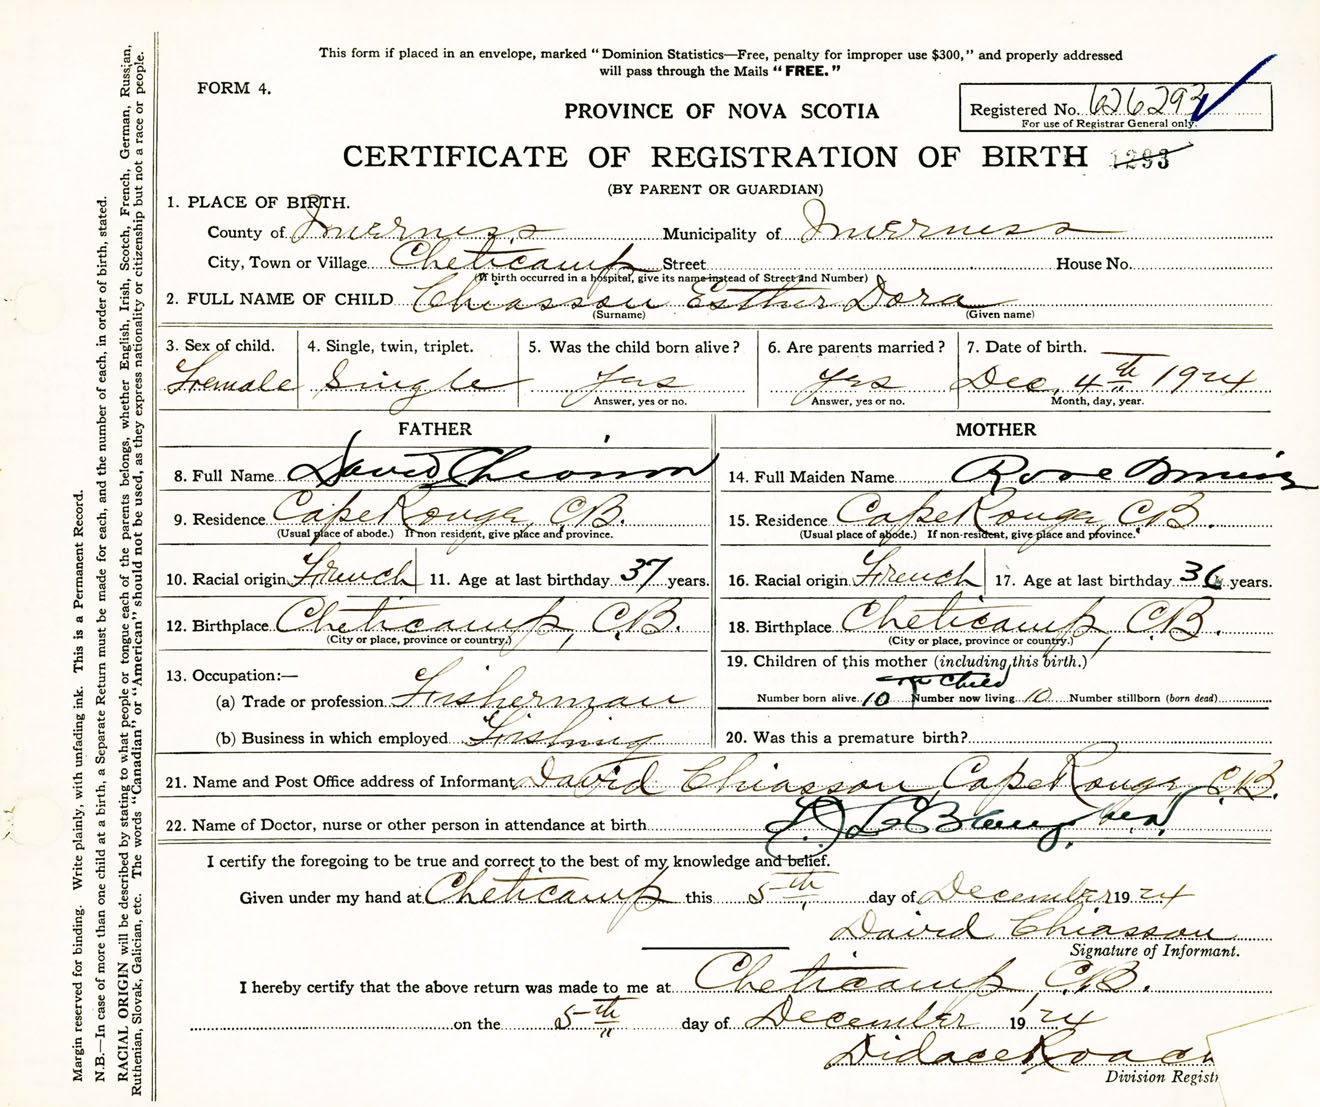 This form if placed in an envelope, marked "Dominion Statistics—Free, penalty for improper use $300," and properly addressed
will pass through the Mails "FREE."
FORM 4.
PROVINCE OF NOVA SCOTIA
Registered No. 626293
For use of Registrar General only.
CERTIFICATE OF REGISTRATION OF BIRTH 1293
(BY PARENT OR GUARDIAN)
1. PLACE OF BIRTH.
County of Inverness Municipality of Inverness
City, Town or Village Cheticamp Street House No.
(If birth occurred in a hospital, give its name instead of Street and Number)
2. FULL NAME OF CHILD Chiasson Esther Dora
(Surname) (Given name)
3. Sex of child. 4. Single, twin, triplet. 5. Was the child born alive? 6. Are parents married? 7. Date of birth.
Female Single Yes Yes Dec. 4th 1924
Answer, yes or no. Answer, yes or no. Month, day, year.
FATHER MOTHER
8. Full Name David Chiasson 14. Full Maiden Name Rose
9. Residence Cape Rouge, C.B. 15. Residence Cape Rouge, C.B.
(Usual place of abode.) If non resident, give place and province. (Usual place of abode.) If non-resident, give place and province.
10. Racial origin French 11. Age at last birthday 37 years. 16. Racial origin French 17. Age at last birthday 36 years.
12. Birthplace Cheticamp, C.B. 18. Birthplace Cheticamp, C.B.
(City or place, province or country.) (City or place, province or country.)
13. Occupation:— 19. Children of this mother (including this birth.)
child
(a) Trade or profession Fisherman Number born alive 10 Number now living 10 Number stillborn (born dead)
(b) Business in which employed Fishing 20. Was this a premature birth?
21. Name and Post Office address of Informant David Chiasson, Cape Rouge, C.B.
22. Name of Doctor, nurse or other person in attendance at birth
I certify the foregoing to be true and correct to the best of my knowledge and belief.
Given under my hand at Cheticamp this 5th day of December 1924
David Chiasson
Signature of Informant.
I hereby certify that the above return was made to me at Cheticamp, C.B.
on the 5th day of December 1924
Didace Roach
Division Regist
Margin reserved for binding. Write plainly, with unfading ink. This is a Permanent Record.
N.B.—In case of more than one child at a birth, a Separate Return must be made for each, and the number of each, in order of birth, stated.
RACIAL ORIGIN will be described by stating to what people or tongue each of the parents belongs, whether English, Irish, Scotch, French, German, Russian,
Ruthenian, Slovak, Galician, etc. The words "Canadian" or "American" should not be used, as they express nationality or citizenship but not a race or people.